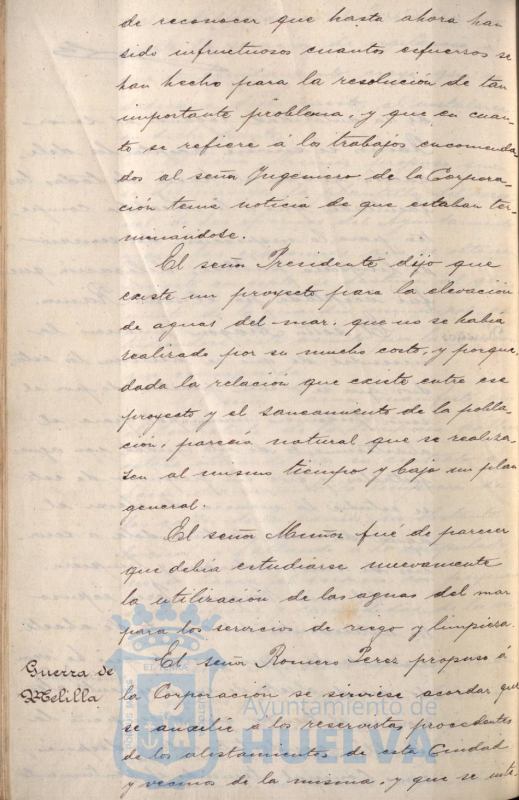 de reconocer que hasta ahora han
sido infructuosos cuantos esfuerzos se
han hecho para la resolución de tan
importante problema, y que en cuan-
to se refiere á los trabajos encomenda-
dos al señor Yngeniero de la Corpora-
ción tenia noticia de que estaban ter-
minándose.
El señor Presidente dijo que
existe un proyecto para la elevación
de aguas del mar, que no se habia
realizado por su mucho costo, y porque,
dada la relación que existe entre ese
proyecto y el saneamiento de la pobla-
ción, parecia natural que se realiza-
sen al mismo tiempo y bajo un plan
general.
El señor Muñoz fué de parecer
que debia estudiarse nuevamente
la utilización de las aguas del mar
para los servicios de riego y limpieza.
Guerra de
Melilla
El señor Romero Perez propuso á
la Corporación se sirviese acordar que
se auxilie á los reservistas procedentes
de los alistamientos de esta Ciudad
y vecinos de la misma, y que se inte
Ayuntamiento de
HUELVA